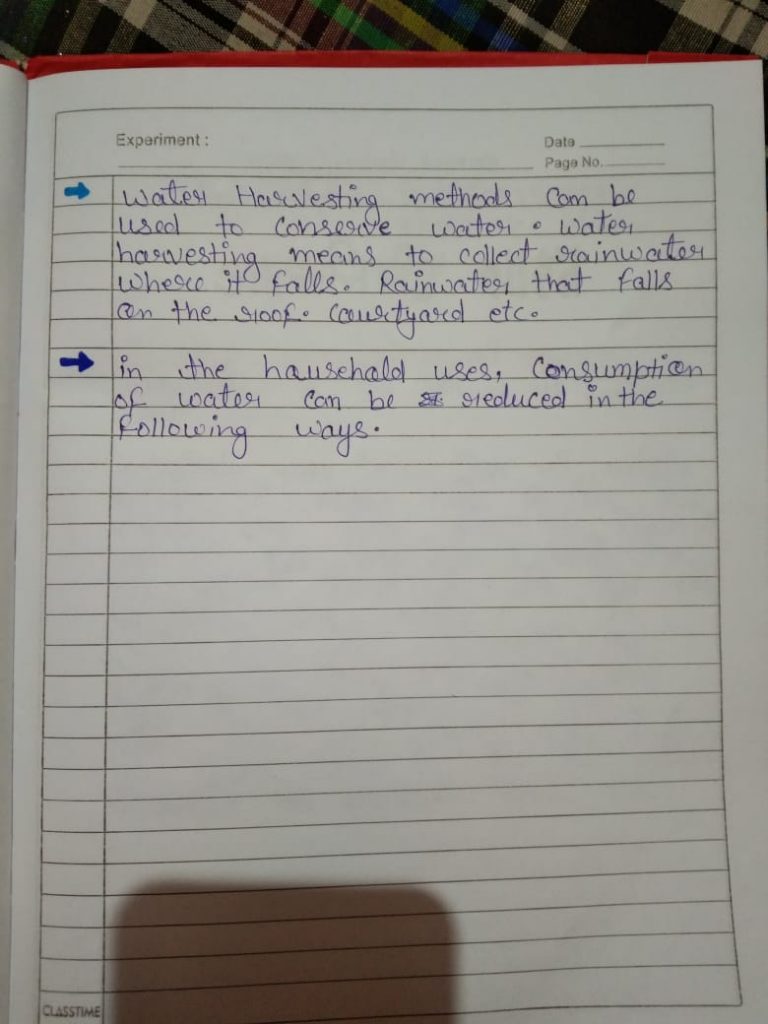 Experiment :
Date
Page No.
Water Harvesting methods can be
used to conserve water. water
harvesting means to collect rainwater
where it falls. Rainwater that falls
on the roof. Courtyard etc.
in the household uses, Consumption
of water can be reduced in the
following ways.
CLASSTIME